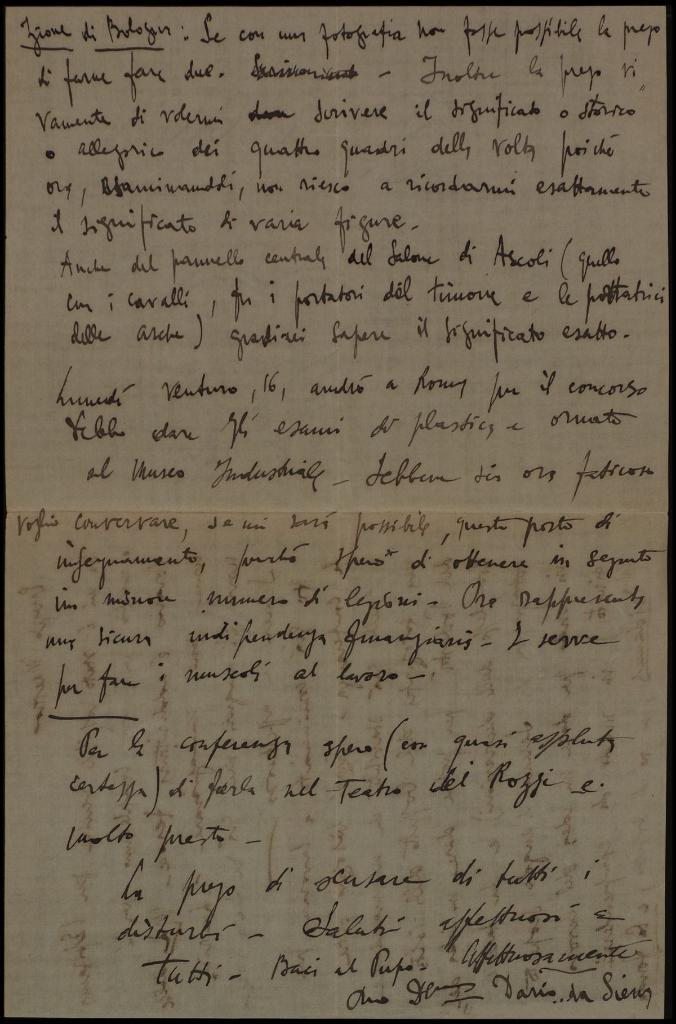 zione di Bologna: Se con una fotografia non fosse possibile la prego
di farne fare due. - Inoltre la prego vi
vamente di volermi scrivere il significato o storico
o allegorico dei quattro quadri della volta poiché
ora, esaminandoli, non riesco a ricordarmi esattamente
il significato di varie figure.
Anche del pannello centrale del Salone di Ascoli (quello
con i cavalli, fra i portatori del timone e le portatrici
delle arche) gradirei sapere il significato esatto.
Lunedì venturo, 16, andrò a Roma per il concorso
Debbo dare gli esami di plastica e ornato
al Museo Industriale - Sebbene sia ora faticoso
voglio conservare, se mi sarà possibile, questo posto di
insegnamento, perché spero di ottenere in seguito
un minore numero di lezioni - Ora rappresenta
una sicura indipendenza finanziaria - E serve
per fare i muscoli al lavoro -
Per la conferenza spero (con quasi assoluta
certezza) di farla nel Teatro dei Rozzi e
molto presto -
La prego di scusare di tutti i
disturbi - Saluti affettuosi a
Tutti - Baci al Pupo - Affettuosamente
suo Dario da Siena